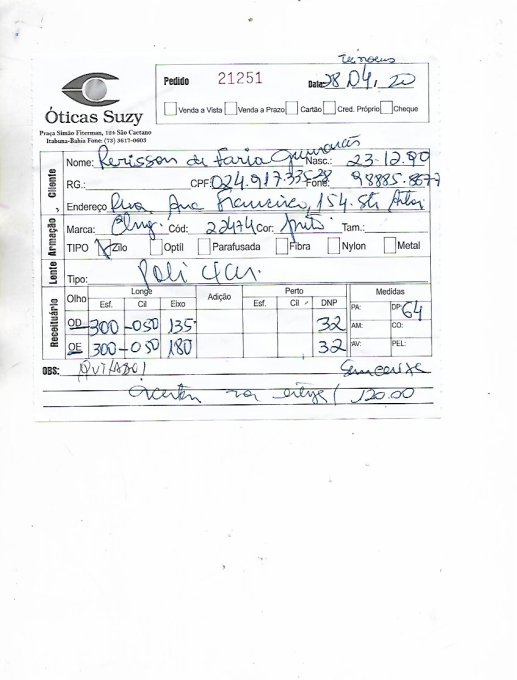 Óticas Suzy
Praça Simão Fiterman, 124 São Caetano
Itabuna-Bahia Fone: (73) 3617-0603
Pedido 21251 Data: 28.04.20
Venda a Vista Venda a Prazo Cartão Cred. Próprio Cheque
Cliente
Nome: Rerisson de Faria Guimarães Nasc.: 23-12.90
RG.: CPF: 024.917.335-28 Fone: 98885.8677
Endereço Rua Ana Francisca, 154. Sto
Armação
Marca: Cód: 22474 Cor: preto. Tam.:
TIPO X Zilo Optil Parafusada Fibra Nylon Metal
Lente
Tipo: Poli
Receituário
Olho Longe Adição Perto DNP Medidas
Esf. Cil Eixo Esf. Cil PA: DP: 64
OD 300 -050 135 32 AM: CO:
OE 300 -050 180 32 AV: PEL:
OBS: QUITADO!
120.00